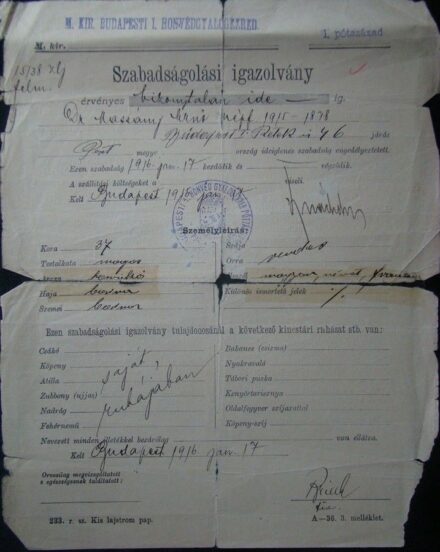 M. KIR. BUDAPESTI I. HONVÉDGYALOGEZRED.
M. kir. 1. pótszázad
15/38
Szabadságolási igazolvány
érvényes bizonytalan időre -ig.
Dr 1915 - 1878
Budapest I. 46 járás
Pest megye ország ideiglenes szabadság engedélyeztetett.
Ezen szabadság 1916 jan. 17 kezdődik és végződik.
A szállítási költségeket a viseli.
Kelt Budapest 1916 jan. 17
Személyleírás:
Kora 37 Szája
Testalkata magas Orra rendes
magyar, német, francia
Haja barna Különös ismertető jelek
Szemei barna
Ezen szabadságolási igazolvány tulajdonosánál a következő kincstári ruházat stb. van:
Csákó Bakancs (csizma)
Köpeny Nyakravaló
Atilla saját Tábori puska
Zubbony (ujjas) ruhájában Kenyértarisznya
Nadrág Oldalfegyver szíjazattal
Fehérnemű Köpeny-szíj
Nevezett minden illetékkel bezárólag van ellátva.
Kelt Budapest 1916 jan. 17
Orvosilag megvizsgáltatott
s egészségesnek találtatott:
233. r. sz. Kis lajstrom pap. A—36. 3. melléklet.